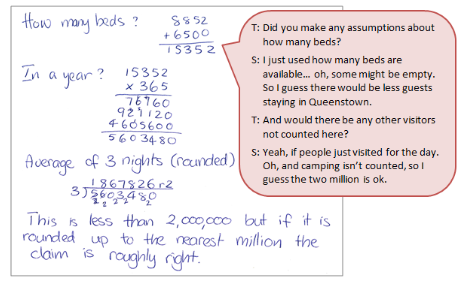 How many beds ? 8852
+ 6500
15352
In a year ? 15352
x 365
76760
921120
4605600
5603480
Average of 3 nights (rounded)
1867826 r2
3)5603480
This is less than 2,000,000 but if it is
rounded up to the nearest million the
claim is roughly right.
T: Did you make any assumptions about
how many beds?
S: I just used how many beds are
available... oh, some might be empty.
So I guess there would be less guests
staying in Queenstown.
T: And would there be any other visitors
not counted here?
S: Yeah, if people just visited for the day.
Oh, and camping isn't counted, so I
guess the two million is ok.